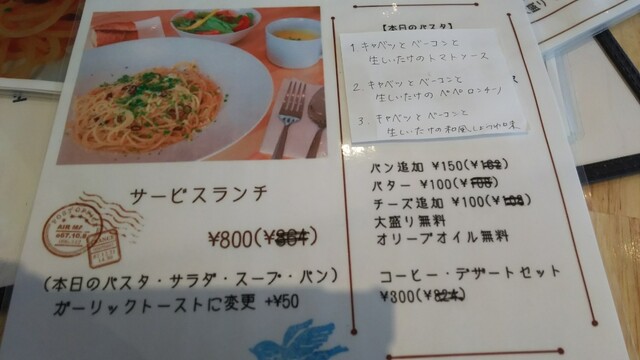 サービスランチ
¥800(¥864)
(本日のパスタ・サラダ・スープ・パン)
ガーリックトーストに変更 +¥50
【本日のパスタ】
1. キャベツとベーコンと
生しいたけのトマトソース
2. キャベツとベーコンと
生しいたけのペペロンチーノ
3. キャベツとベーコンと
生しいたけの和風しょうゆ味
パン追加 ¥150(¥162)
バター ¥100(¥108)
チーズ追加 ¥100(¥108)
大盛り無料
オリーブオイル無料
コーヒー・デザートセット
¥300(¥324)